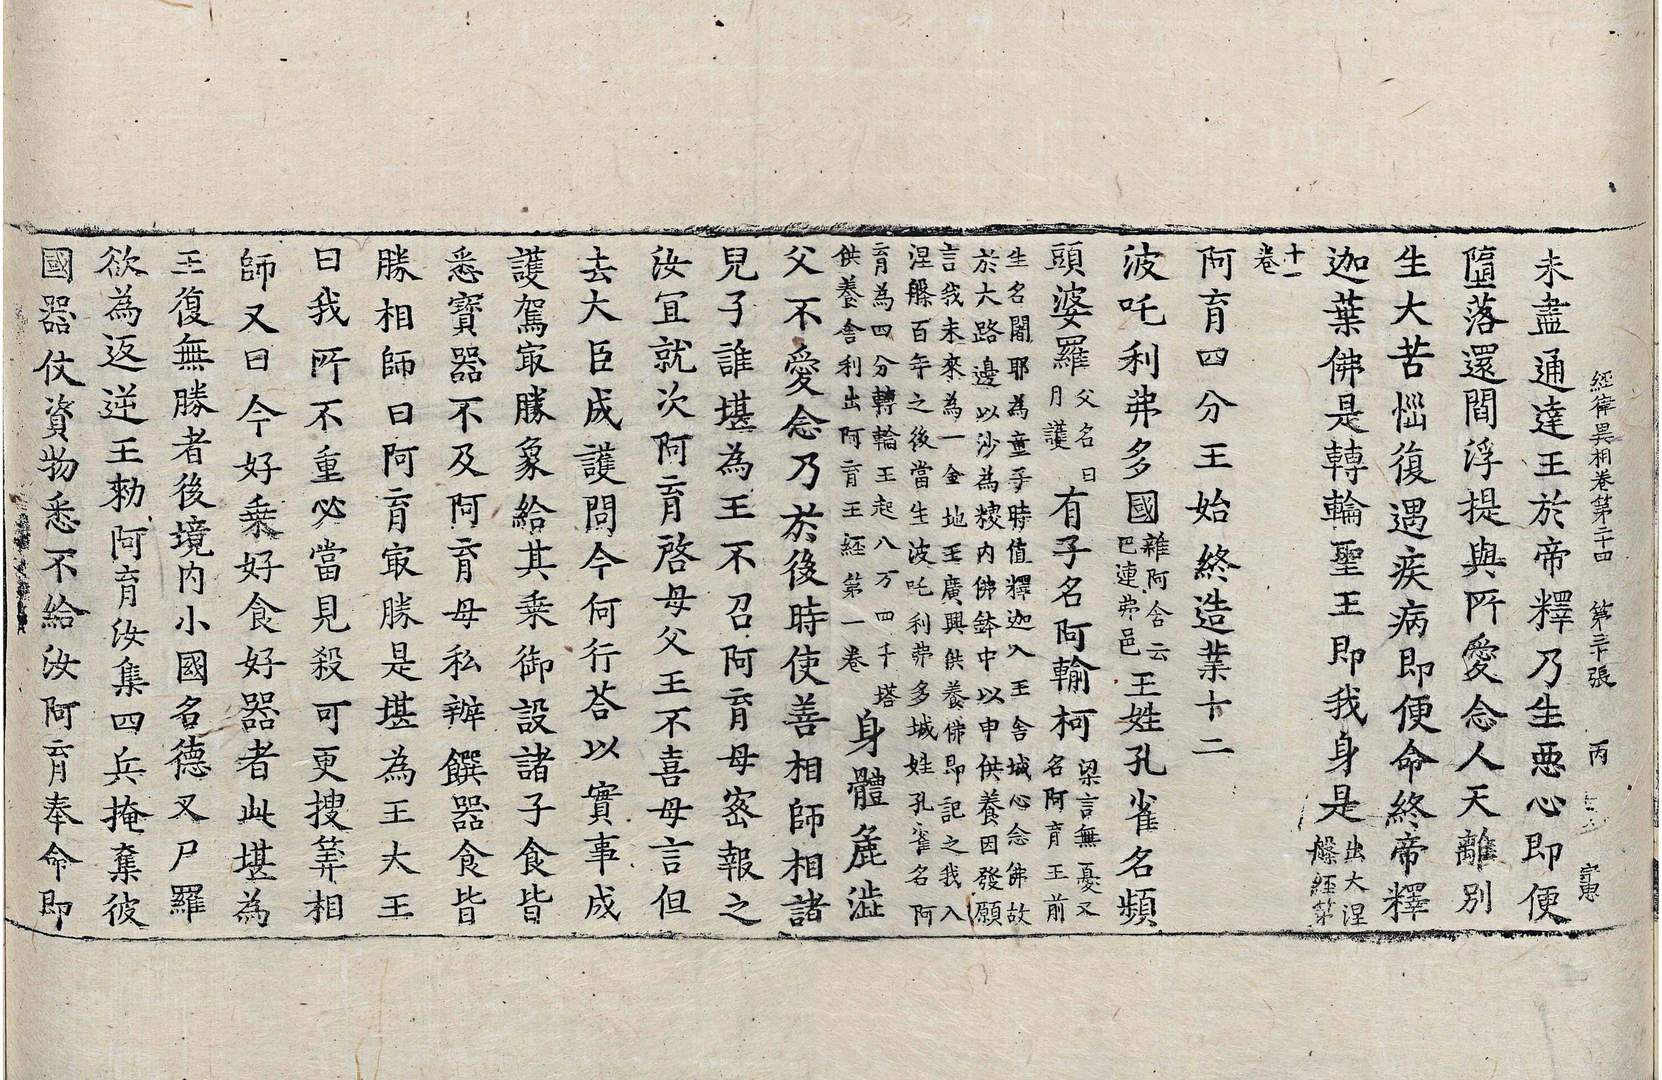 經律異相卷第二十四 第三十張 丙
未盡通達王於帝釋乃生惡心即便
墮落還閻浮提與所愛念人天離別
生大苦惱復遇疾病即便命終帝釋
迦葉佛是轉輪聖王即我身是
出大涅
槃經第
十一
卷
阿育四分王始終造業十二
波吒利弗多國
雜阿含云
巴連弗邑
王姓孔雀名頻
頭婆羅
父名曰
月護
有子名阿輸柯
梁言無憂又
名阿育王前
生名闍耶為童子時值釋迦入王舍城心念佛故
於大路邊以沙為糗內佛鉢中以申供養因發願
言我未來為一金地王廣興供養佛即記之我入
涅槃百年之後當生波吒利弗多城姓孔雀名阿
育為四分轉輪王起八万四千塔
供養舍利出阿育王經第一卷
身體麁澁
父不愛念乃於後時使善相師相諸
兒子誰堪為王不召阿育母密報之
汝宜就次阿育啓母父王不喜母言但
去大臣成護問今何行荅以實事成
護駕㝡勝象給其乘御設諸子食皆
悉寶器不及阿育母私辦饌器食皆
勝相師曰阿育㝡勝是堪為王大王
曰我所不重必當見殺可更搜筭相
師又曰今好乘好食好器者此堪為
王復無勝者後境內小國名德叉尸羅
欲為返逆王勑阿育汝集四兵掩奪彼
國器仗資物悉不給汝阿育奉命即